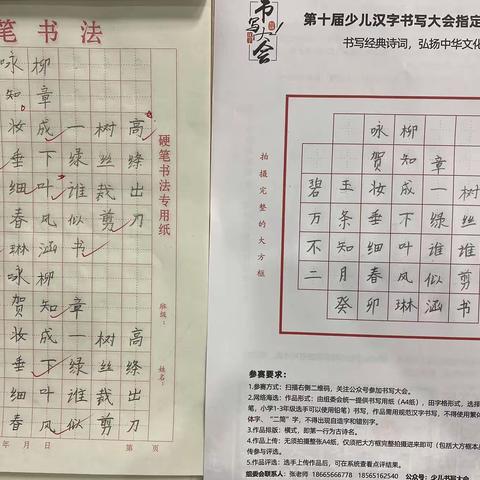 笔书法
咏柳
知章
妆成一树高
垂下绿丝绦
细叶谁裁出
春风似剪刀
琳涵书
咏柳
贺知章
妆成一树高
垂下绿丝绦
细叶谁裁出
春风似剪刀
年 月 日 第 页
硬笔书法专用纸
班级：
姓名：
书写大会
第十届少儿汉字书写大会指定
书写经典诗词，弘扬中华文化
拍摄完整的大方框
咏柳
贺知章
碧玉妆成一树
万条垂下绿丝
不知细叶谁谁
二月春风似剪
癸卯琳涵书
参赛要求：
1.参赛方式：扫描右侧二维码，关注公众号参加书写大会。
2.网络海选：作品形式：由组委会统一提供书写用纸（A4纸），田字格形式，选择
笔，小学1-3年级选手可以使用铅笔）书写，作品需用规范汉字书写，不得使用繁体
体字、“二简”字，不得出现自造字和错别字。
3.作品排版：横式，即第一行为古诗名。
4.作品上传：无须拍摄整张A4纸，仅须把大方框完整拍摄进来即可（包括大方框本
传参与评选。
5.作品评选：选手上传作品后，可在系统查看点评结果。
组委会联系人：张老师 18665666778 18565162540 公众号：少儿书写大会